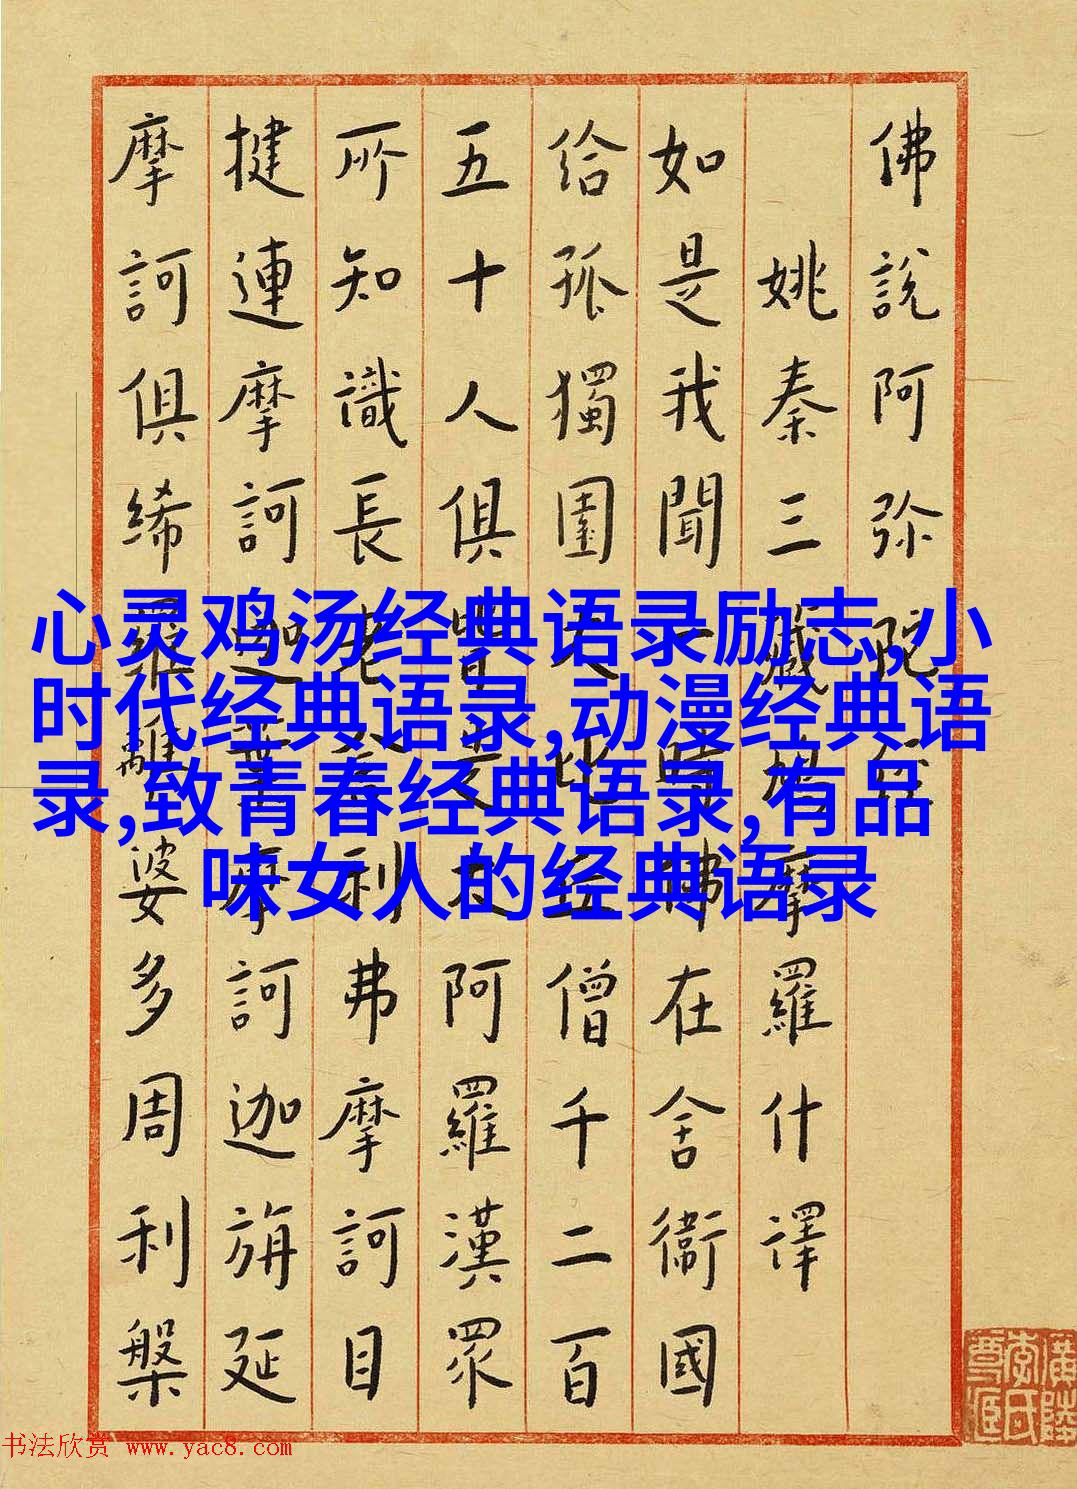 佛說阿弥陀經
姚秦三藏鳩摩羅什譯
如是我聞一時佛在舍衞國
給孤獨園大比丘僧千二百
五十人俱皆是大阿羅漢眾
所知識長老舍利弗摩訶目
揵連摩訶迦葉摩訶迦旃延
摩訶俱絺羅離婆多周利槃
心灵鸡汤经典语录励志,小
时代经典语录,动漫经典语
录,致青春经典语录,有品
味女人的经典语录
书法欣赏 www.yac8.com